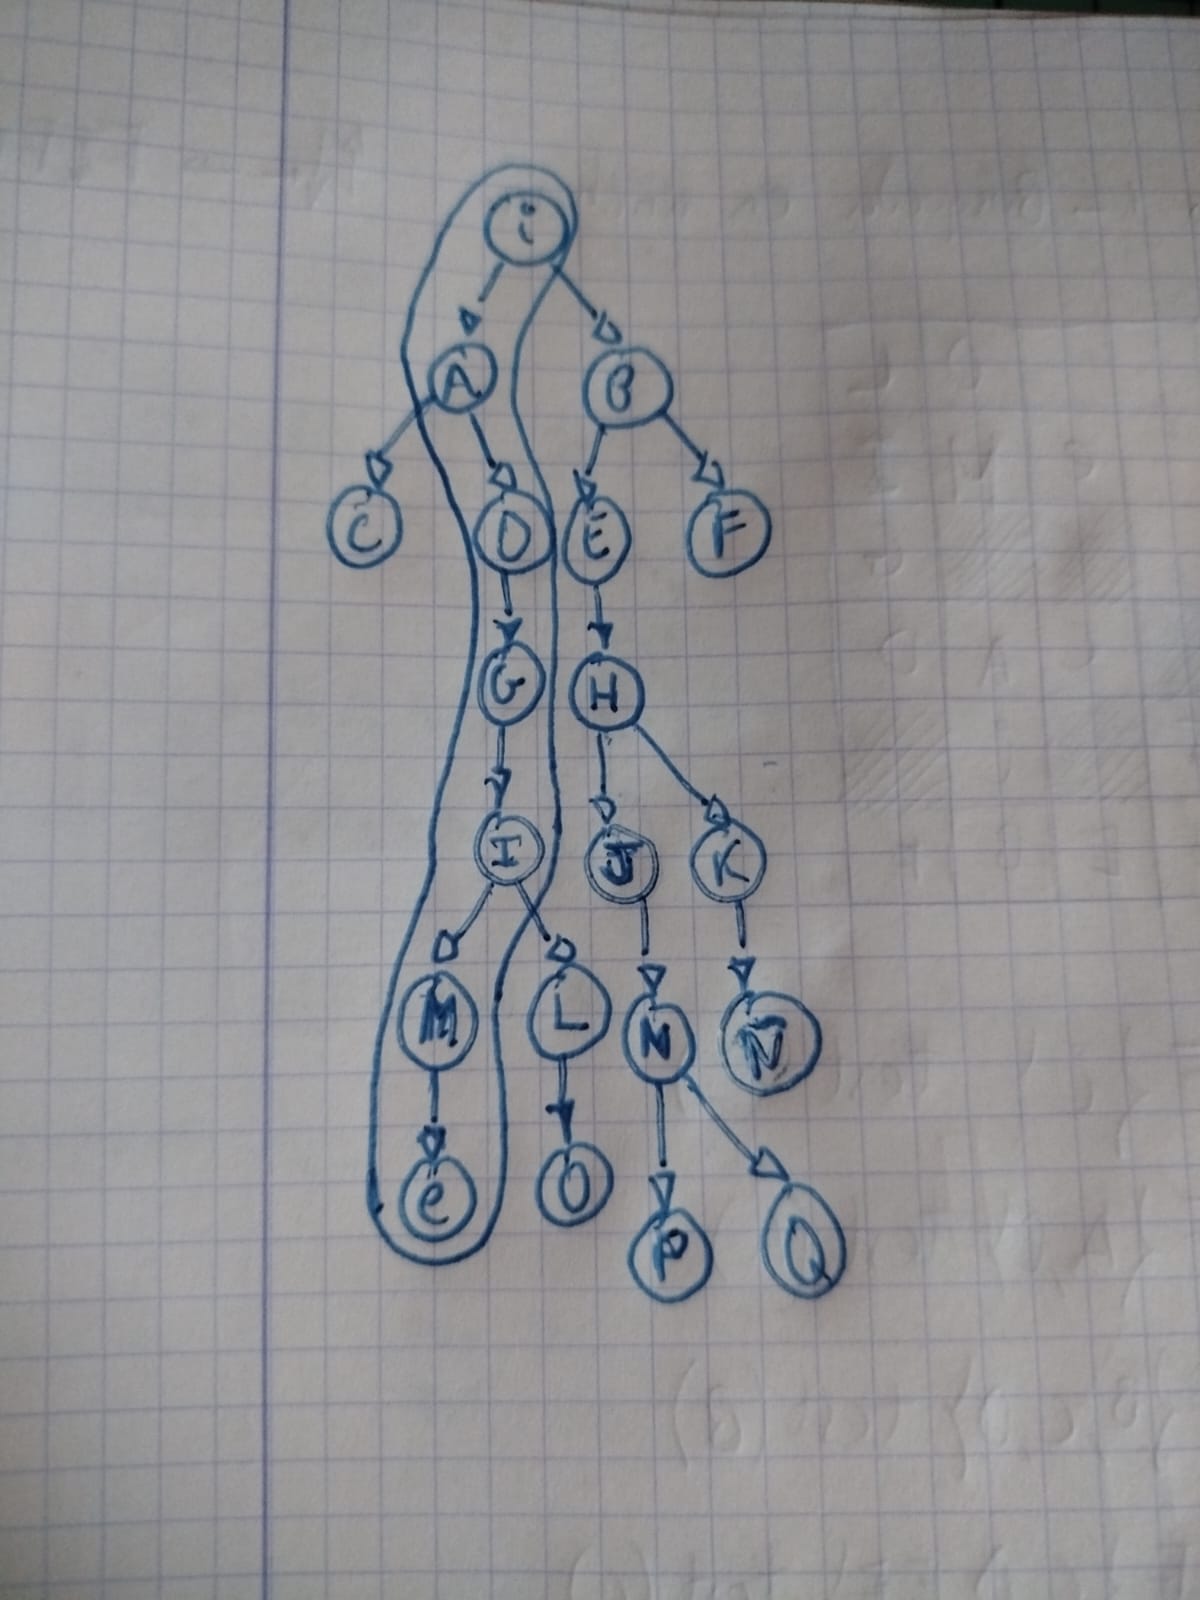 i
A B
C D E F
G H
I J K
M L N N
e O P Q